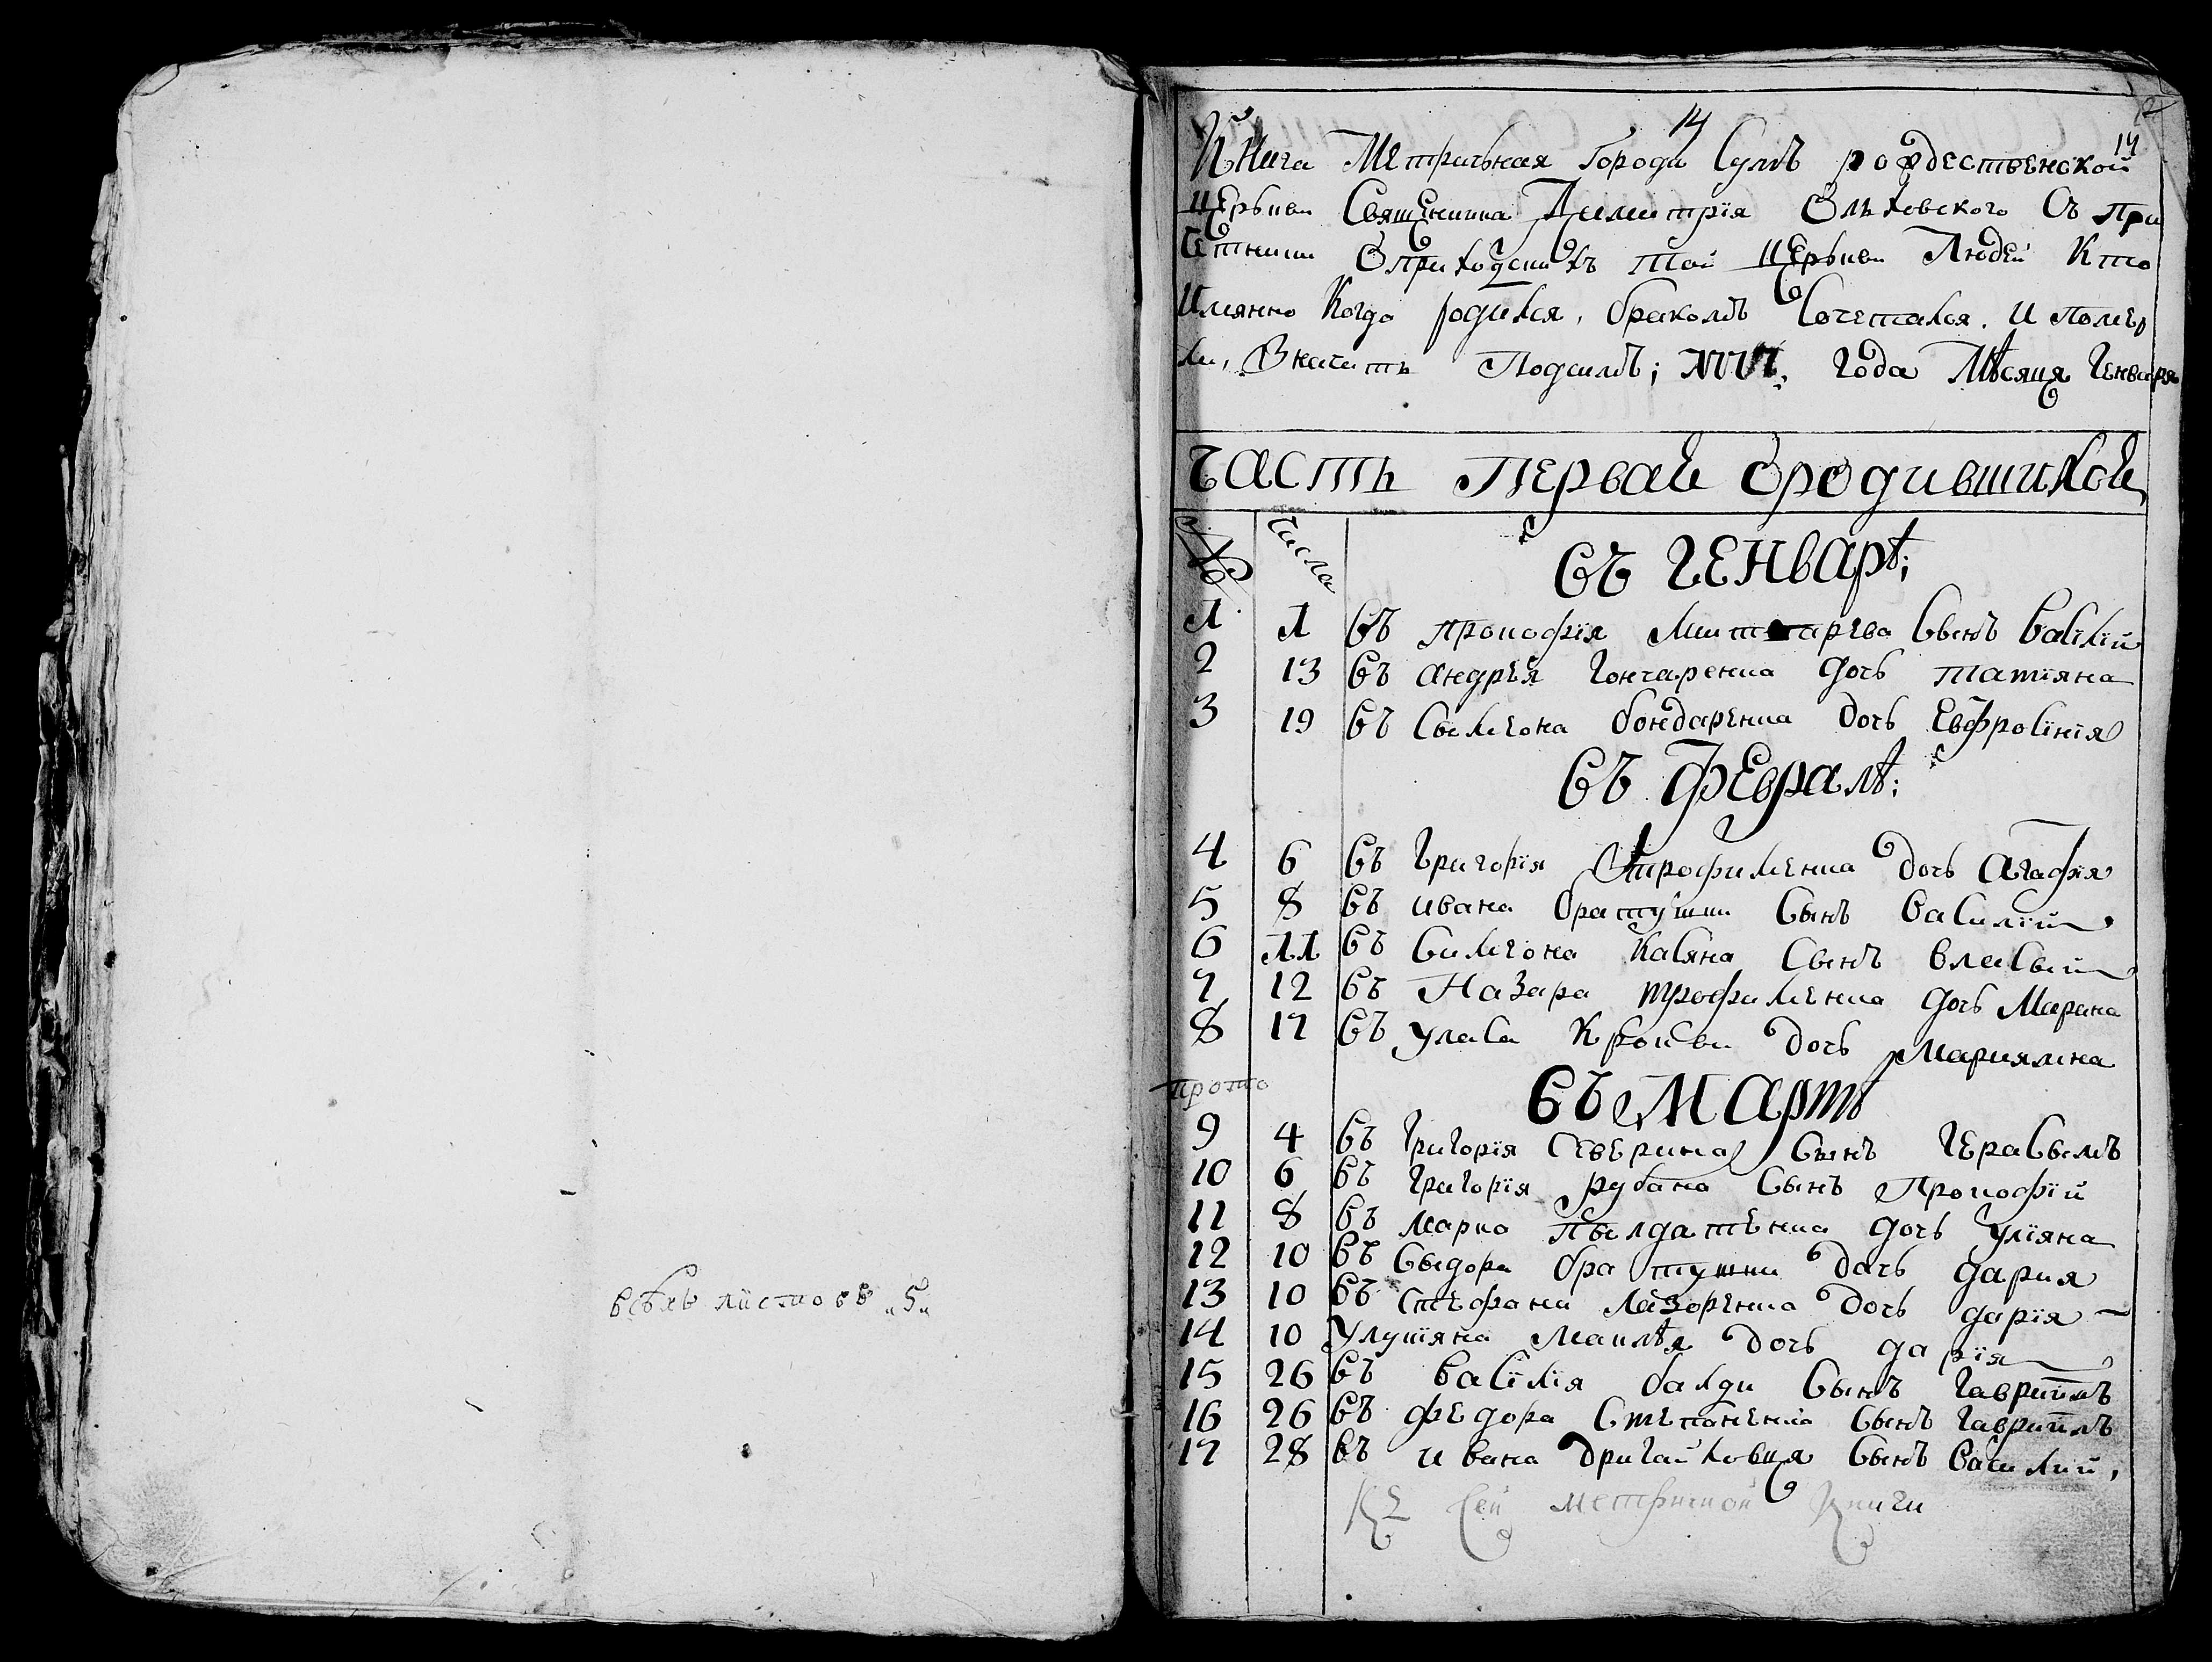 всѣхъ листовъ „5„
14
14
Книга Метрычная города Сумъ рождественской
церькви Священника Димитрїя Ольховского Съ при
четники Оприходскихъ той церькви Людей Кто
Имянно Когда родился, бракомъ Сочетался. И помер
ли, Значитъ Подсимъ; года Мѣсяця Генваря
часть Первая Ородившихся
№ числа
Въ Генварѣ;
1 1 Въ Прокофїя Сынъ Васїлїй
2 13 Въ андрея Гончаренка дочь татїяна
3 19 Въ Сымеона бондаренка дочь Евфросїнїя
Въ Февралѣ:
4 6 Въ Григорїя трофименка дочь Агафїя
5 8 Въ ивана братушки Сынъ Василїй
6 11 Въ Симеона Касяна Сынъ Власый
7 12 Въ Назара трофименка дочь Марина
8 17 Въ Уласа дочь Мариямна
прото
Въ Мартѣ
9 4 Въ Григорїя Северина Сынъ Герасымъ
10 6 Въ Григорїя рубана Сынъ Прокофїй
11 8 Въ Марка дочь Улїяна
12 10 Въ Сыдора братушки дочь дария
13 10 Въ Стефана Лазоренка дочь дарїя
14 10 дочь дарїя
15 26 Въ Васїлїя балди Сынъ Гаврїилъ
16 26 Въ федора Степаненка Сынъ Гаврїилъ
17 28 Въ ивана Сынъ Василий,
Къ Сей метричной книги